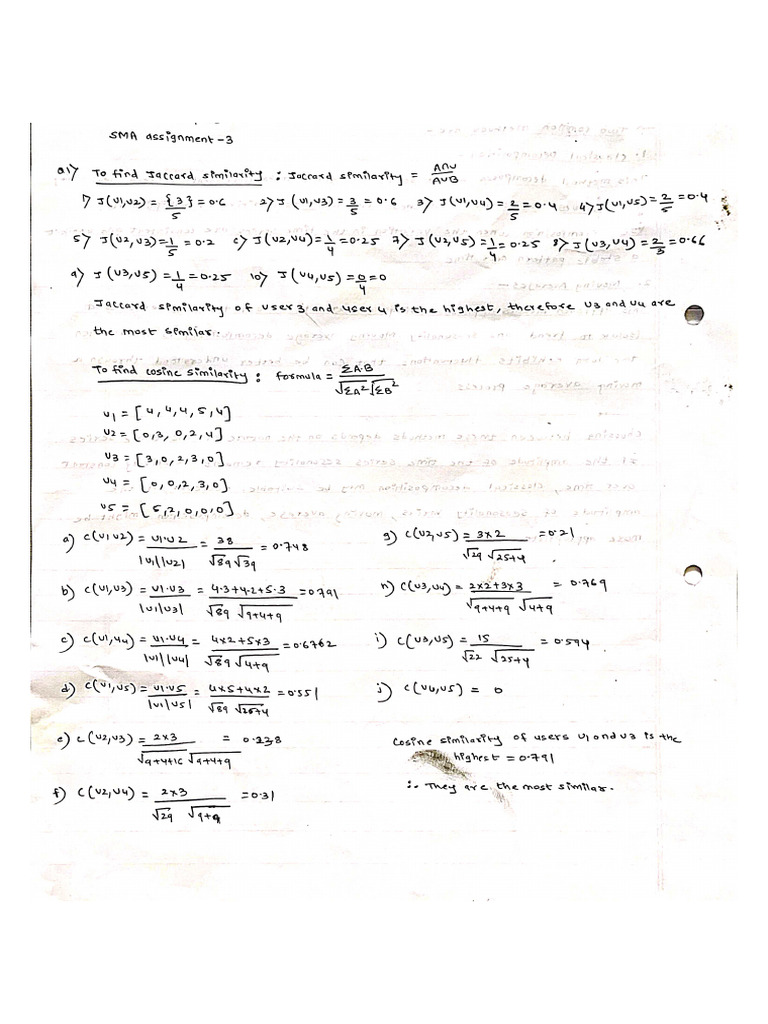 SMA assignment-3
Q1> To find Jaccard similarity : Jaccard similarity = A∩U / A∪B
1> J(U1,U2) = {3}/5 = 0.6 2> J(U1,U3) = 3/5 = 0.6 3> J(U1,U4) = 2/5 = 0.4 4> J(U1,U5) = 2/5 = 0.4
5> J(U2,U3) = 1/5 = 0.2 6> J(U2,U4) = 1/4 = 0.25 7> J(U2,U5) = 1/4 = 0.25 8> J(U3,U4) = 2/3 = 0.66
9> J(U3,U5) = 1/4 = 0.25 10> J(U4,U5) = 0/4 = 0
Jaccard similarity of user 3 and user 4 is the highest, therefore U3 and U4 are
the most similar.
To find cosine similarity : formula = ΣA·B / √ΣA² √ΣB²
U1 = [4, 4, 4, 5, 4]
U2 = [0, 3, 0, 2, 4]
U3 = [3, 0, 2, 3, 0]
U4 = [0, 0, 2, 3, 0]
U5 = [5, 2, 0, 0, 0]
a) C(U1 U2) = U1·U2 / |U1||U2| = 38 / √89 √39 = 0.748
b) C(U1,U3) = U1·U3 / |U1||U3| = 4·3+4·2+5·3 / √89 √9+4+9 = 0.791
c) C(U1,U4) = U1·U4 / |U1||U4| = 4×2+5×3 / √89 √4+9 = 0.6762
d) C(U1,U5) = U1·U5 / |U1||U5| = 4×5+4×2 / √89 √25+4 = 0.551
e) C(U2,U3) = 2×3 / √9+4+16 √9+4+9 = 0.238
f) C(U2,U4) = 2×3 / √29 √9+9 = 0.31
g) C(U2,U5) = 3×2 / √29 √25+4 = 0.21
h) C(U3,U4) = 2×2+3×3 / √9+4+9 √4+9 = 0.769
i) C(U3,U5) = 15 / √22 √25+4 = 0.594
j) C(U4,U5) = 0
Cosine similarity of users U1 and U3 is the
highest = 0.791
∴ They are the most similar.